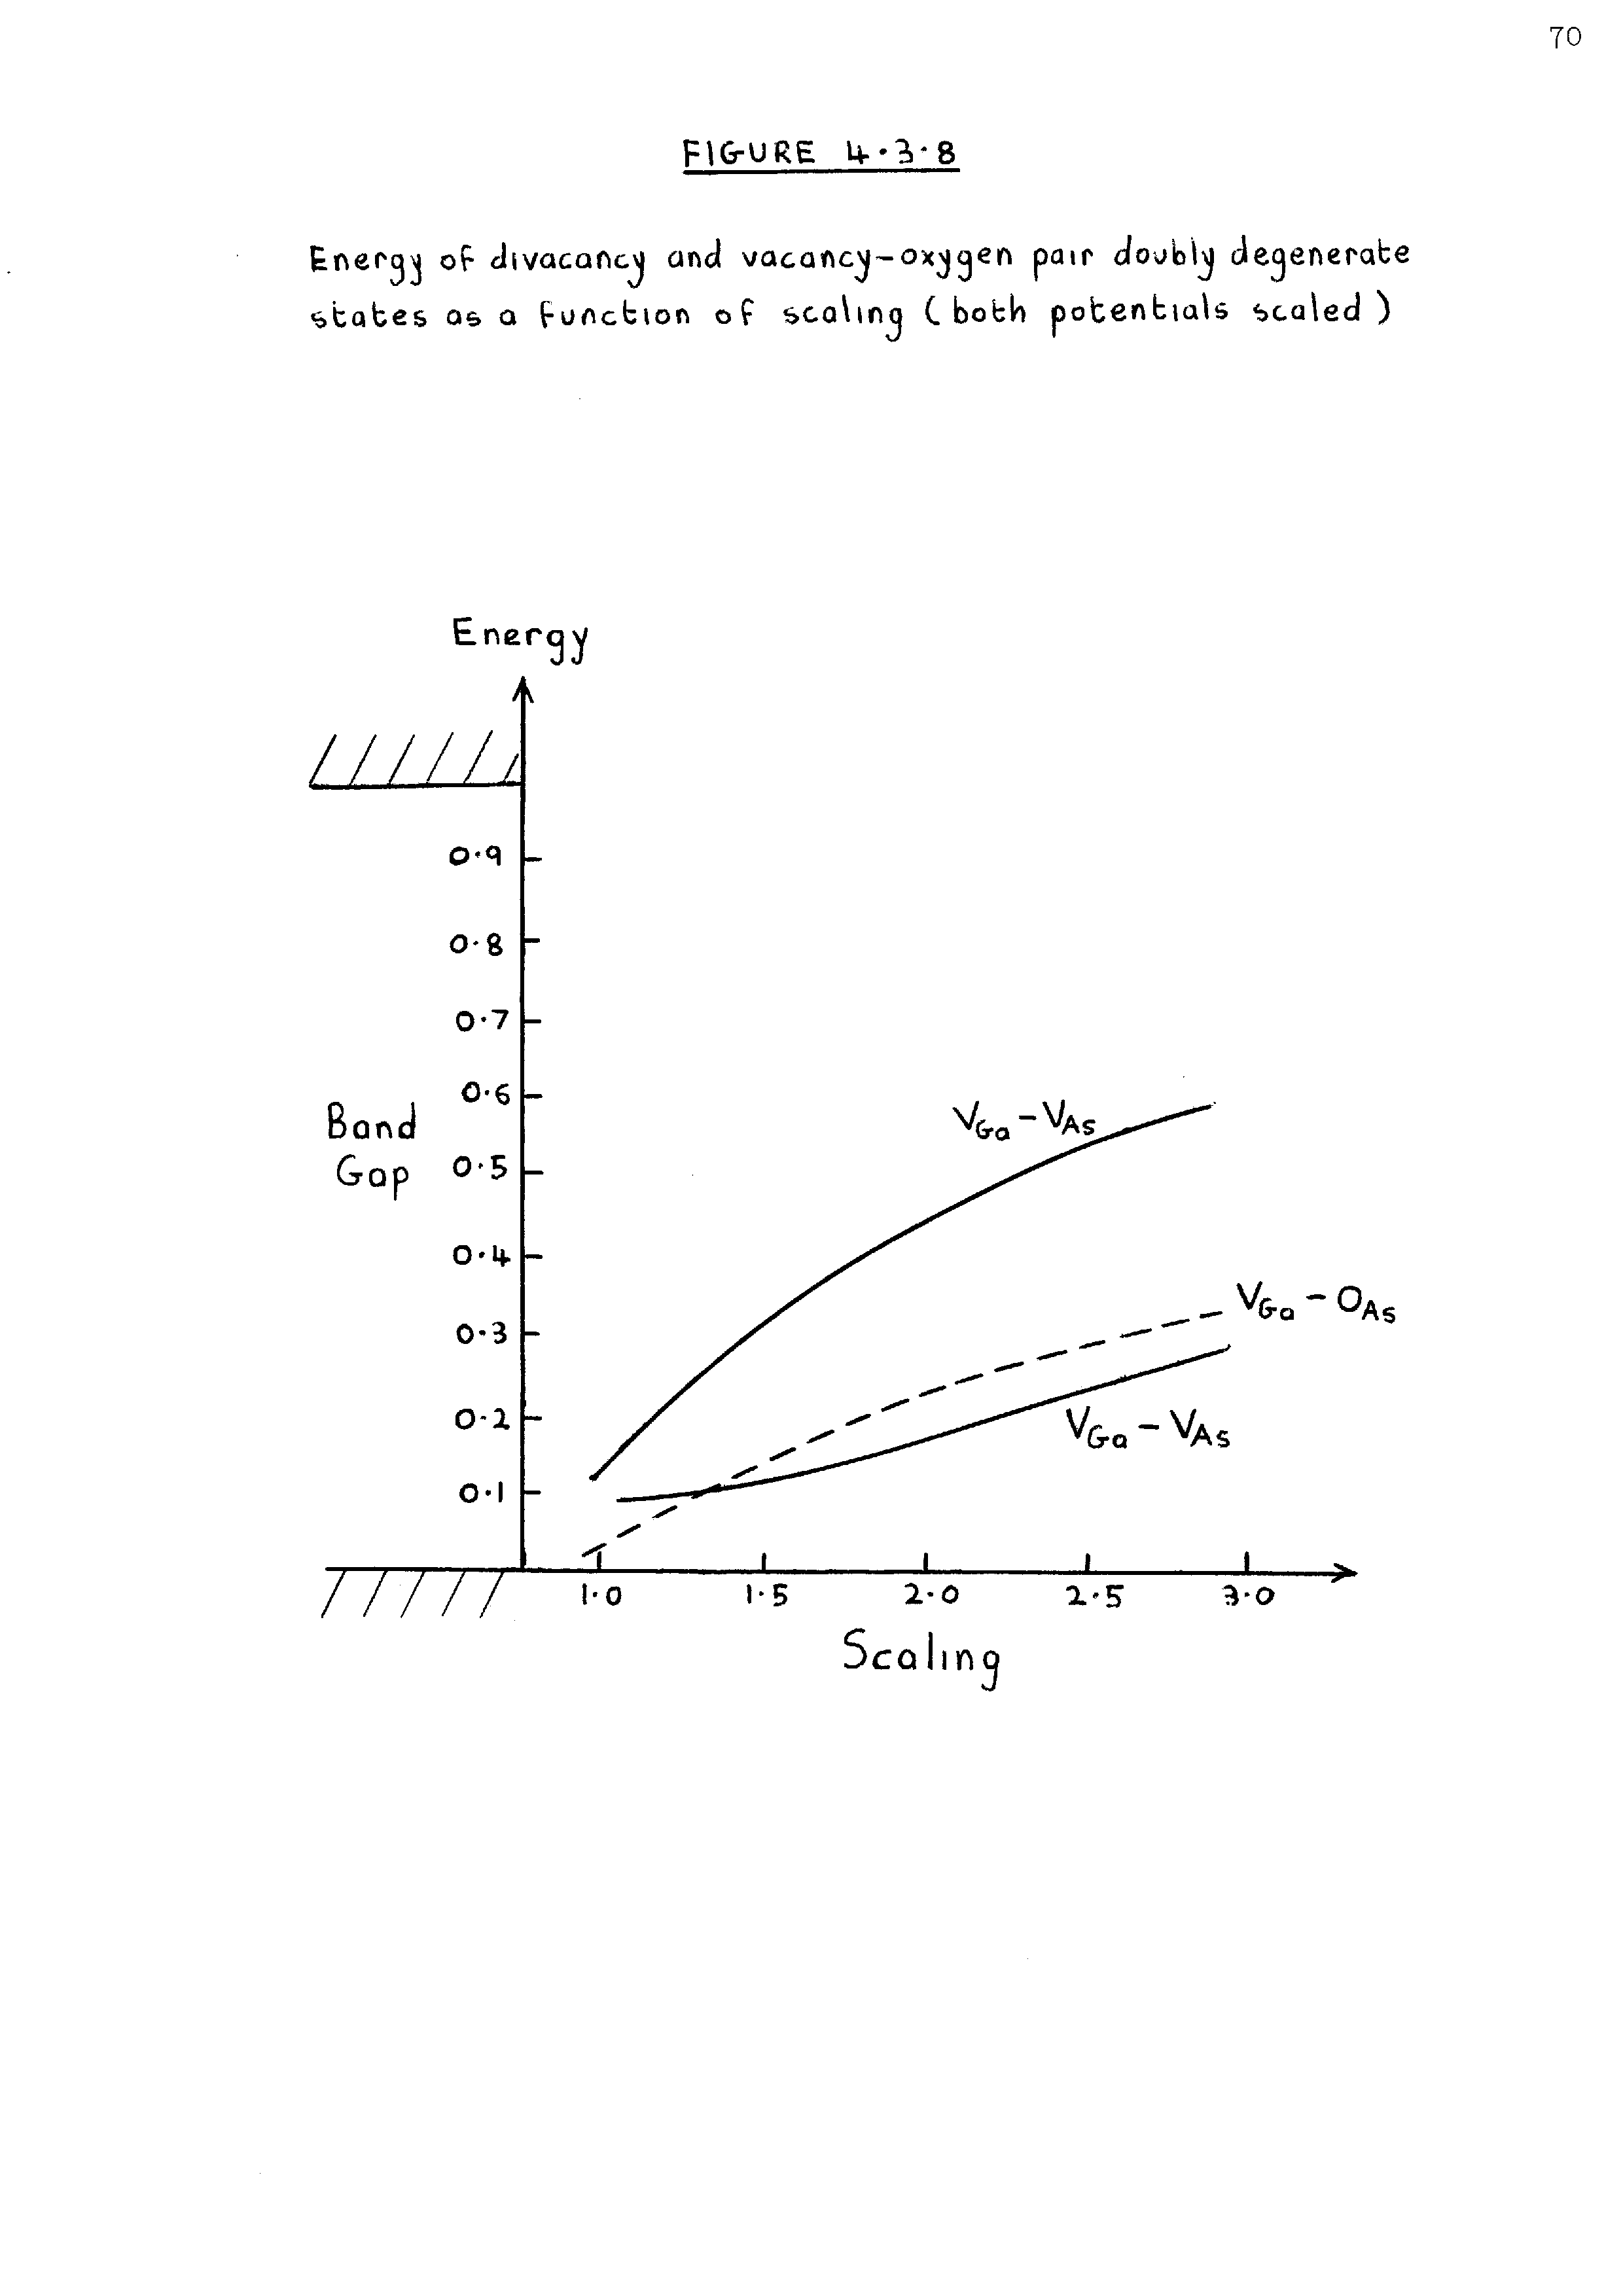 70
FIGURE 4.3.8
Energy of divacancy and vacancy-oxygen pair doubly degenerate
states as a function of scaling (both potentials scaled)
Energy
0.9
0.8
0.7
0.6
Band
Gap
0.5
0.4
0.3
0.2
0.1
VGa - VAs
VGa - OAs
VGa - VAs
1.0 1.5 2.0 2.5 3.0
Scaling